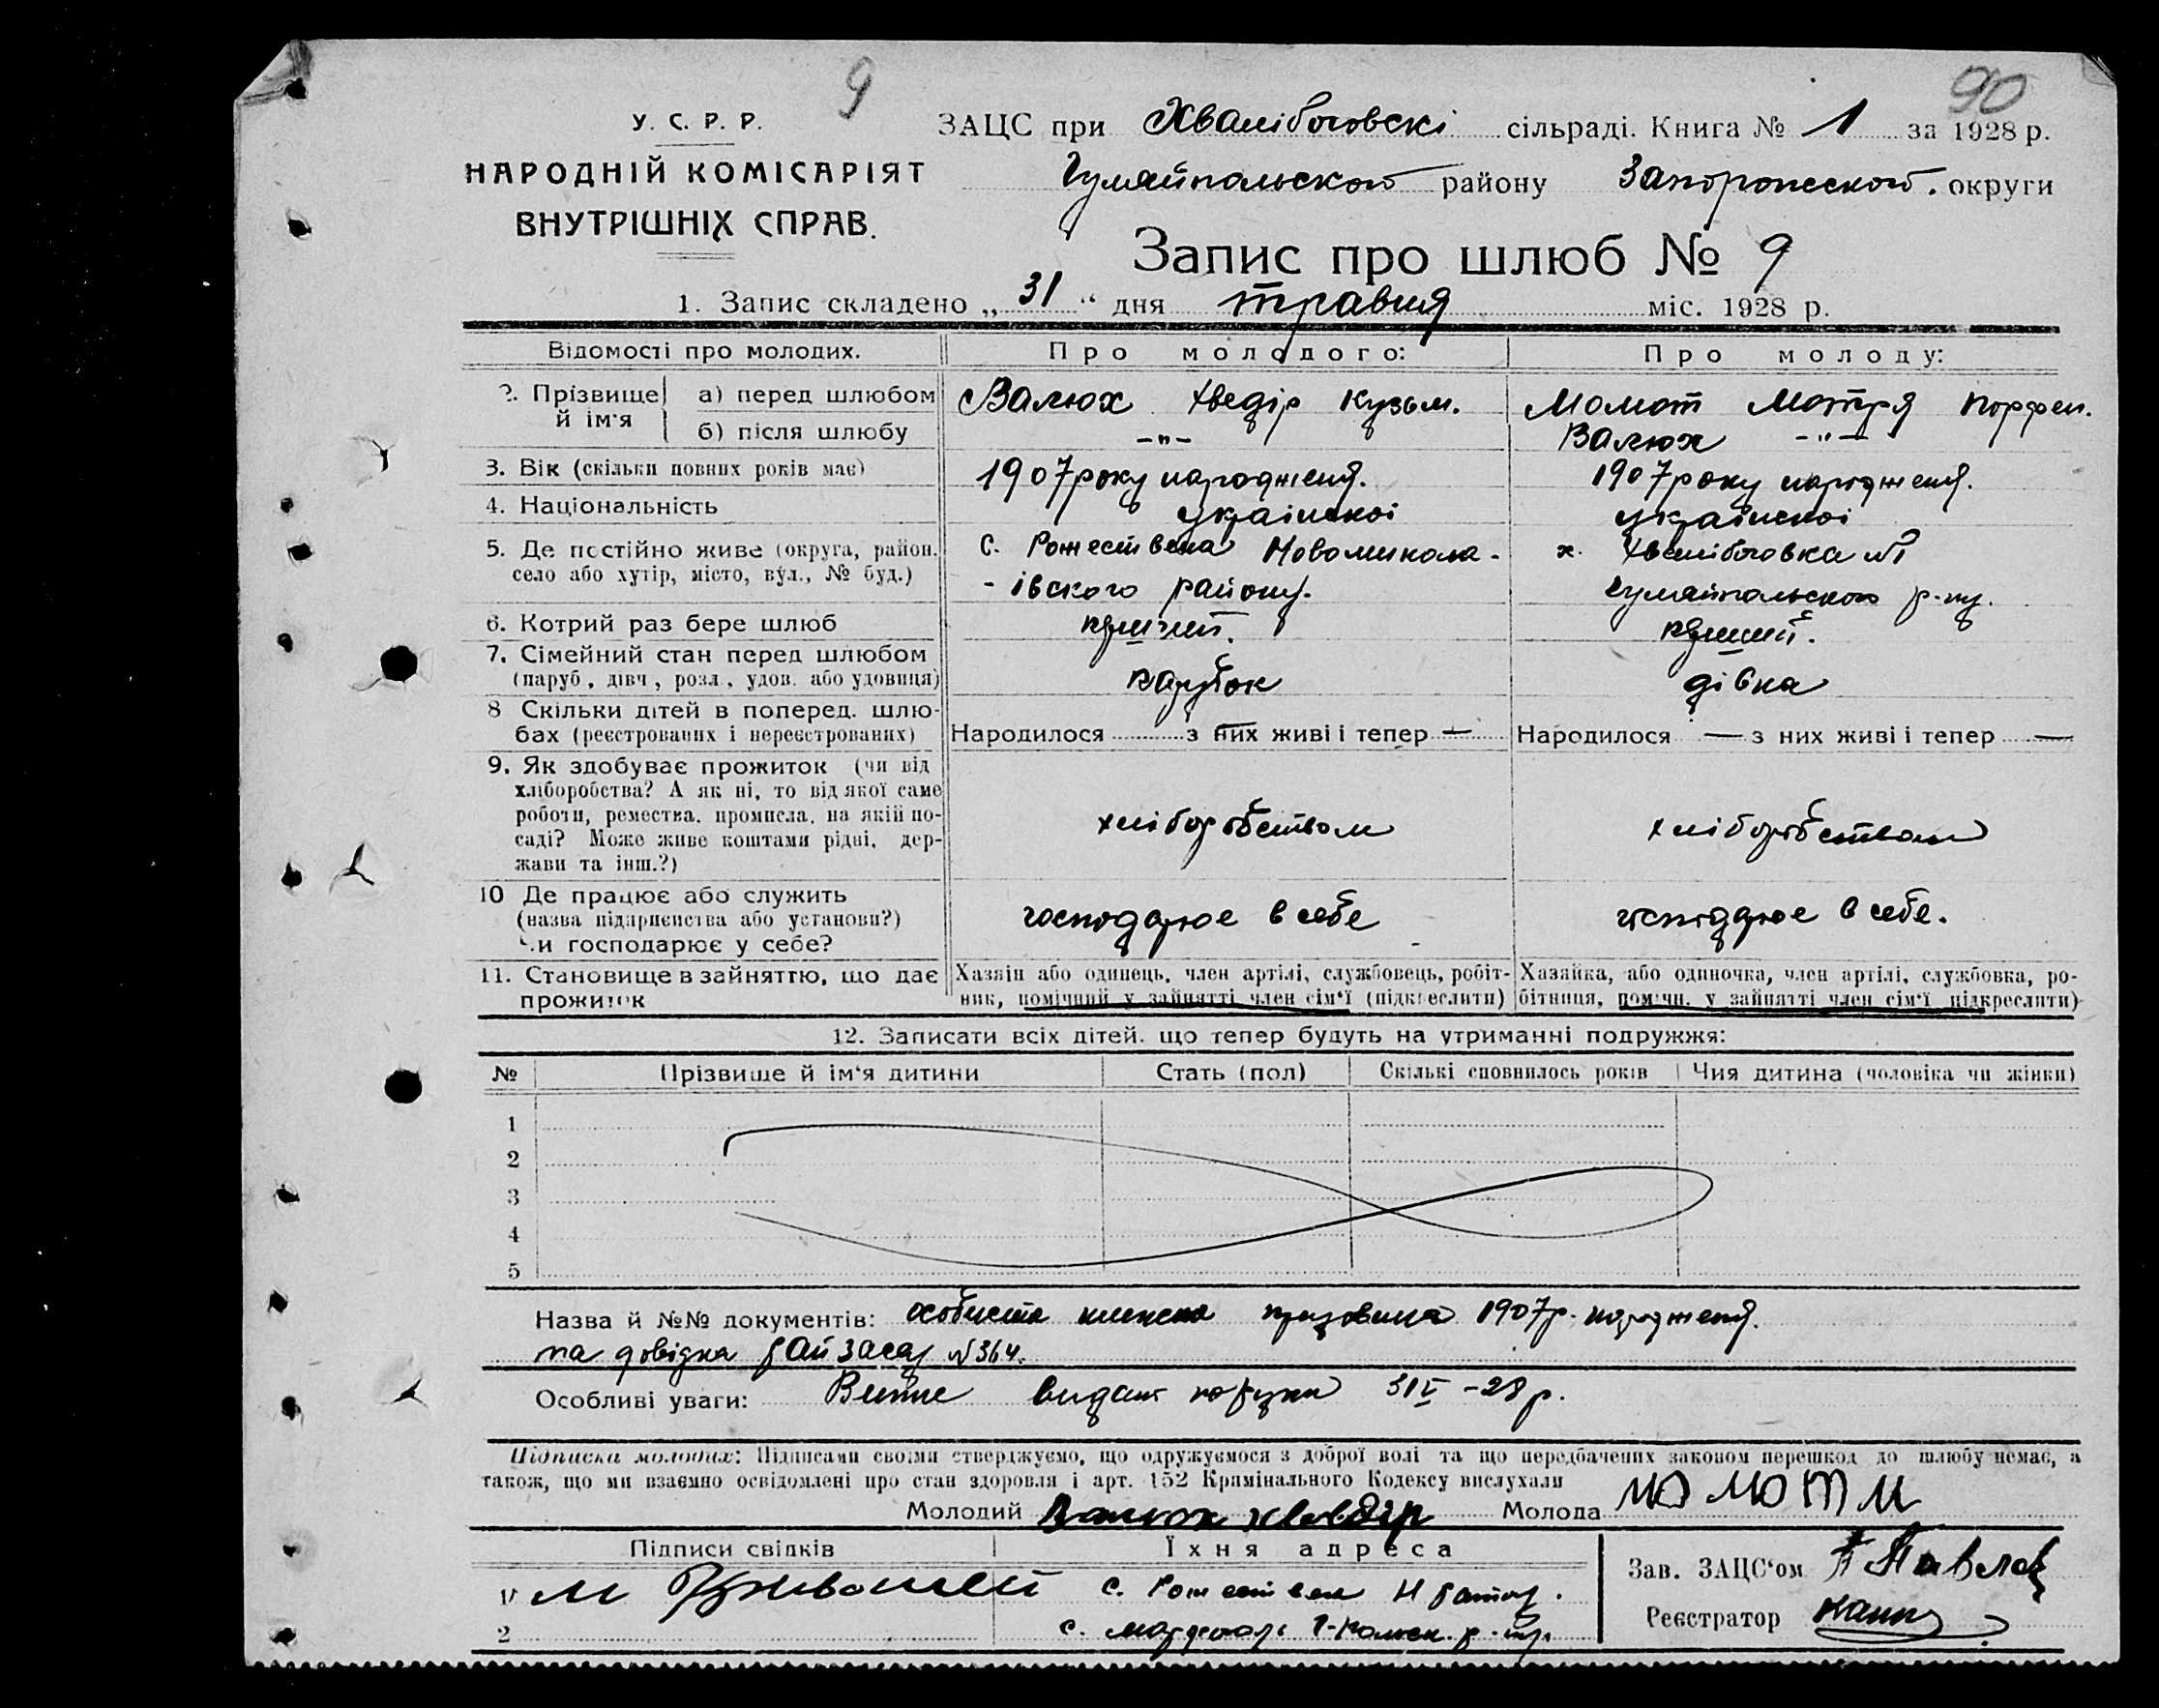 9
90
У. С. Р. Р.
НАРОДНІЙ КОМІСАРІЯТ
ВНУТРІШНІХ СПРАВ.
ЗАЦС при Хвалібоговскі сільраді. Книга № 1 за 1928 р.
Гуляйпольского району Запорожского округи
Запис про шлюб № 9
1. Запис складено „ 31 “ дня травня міс. 1928 р.
Відомості про молодих. Про молодого: Про молоду:
2. Прізвище й ім'я а) перед шлюбом Валюх Хведір Кузьм. Момот Мотря Порфен.
б) після шлюбу -„- Валюх -„-
3. Вік (скільки повних років має) 1907 року народженя. 1907 року народженя.
4. Національність українскоі українскоі
5. Де постійно живе (округа, район. с. Рожествена Новомикола- х. Хвалібоговка №1
село або хутір, місто, вул., № буд.) -івского району. Гуляйпольского р-ну.
6. Котрий раз бере шлюб перший. перший.
7. Сімейний стан перед шлюбом парубок дівка
(паруб., дівч., розл., удов. або удовиця)
8 Скільки дітей в поперед. шлю-
бах (реєстрованих і нереєстрованих) Народилося з них живі і тепер — Народилося — з них живі і тепер —
9. Як здобуває прожиток (чи від
хліборобства? А як ні, то від якої саме
роботи, ремества, промисла, на якій по- хліборобством хліборобством
саді? Може живе коштами рідні, дер-
жави та інш.?)
10 Де працює або служить
(назва підприємства або установи?) господарює в себе господарює в себе.
Чи господарює у себе?
11. Становище в зайняттю, що дає Хазяїн або одинець, член артілі, службовець, робіт- Хазяйка, або одиночка, член артілі, службовка, ро-
прожиток ник, помічний у зайнятті член сім'ї (підкреслити) бітниця, поміч. у зайнятті член сім'ї підкреслити)
12. Записати всіх дітей, що тепер будуть на утриманні подружжя:
№ Прізвище й ім'я дитини Стать (пол) Скількі сповнилось років Чия дитина (чоловіка чи жінки)
1
2
3
4
5
Назва й №№ документів: особиста книжка призовика 1907 р. народженя.
та довідка райзагсу №364.
Особливі уваги: видано 31 V -28 р.
Підписка молодих: Підписами своїми стверджуємо, що одружуємося з доброї волі та що передбачених законом перешкод до шлюбу немає, а
також, що ми взаємно освідомлені про стан здоровля і арт. 152 Кримінального Кодексу вислухали
Молодий Валюх Хведір Молода Момот М
Підписи свідків Їхня адреса
1 М с. Рожествен
2 с.
Зав. ЗАЦС'ом
Реєстратор